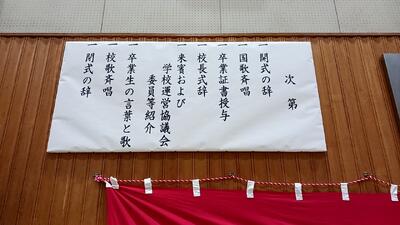 次第
一 開式の辞
一 国歌斉唱
一 卒業証書授与
一 校長式辞
一 来賓および
学校運営協議会
委員等紹介
一 卒業生の言葉と歌
一 校歌斉唱
一 閉式の辞